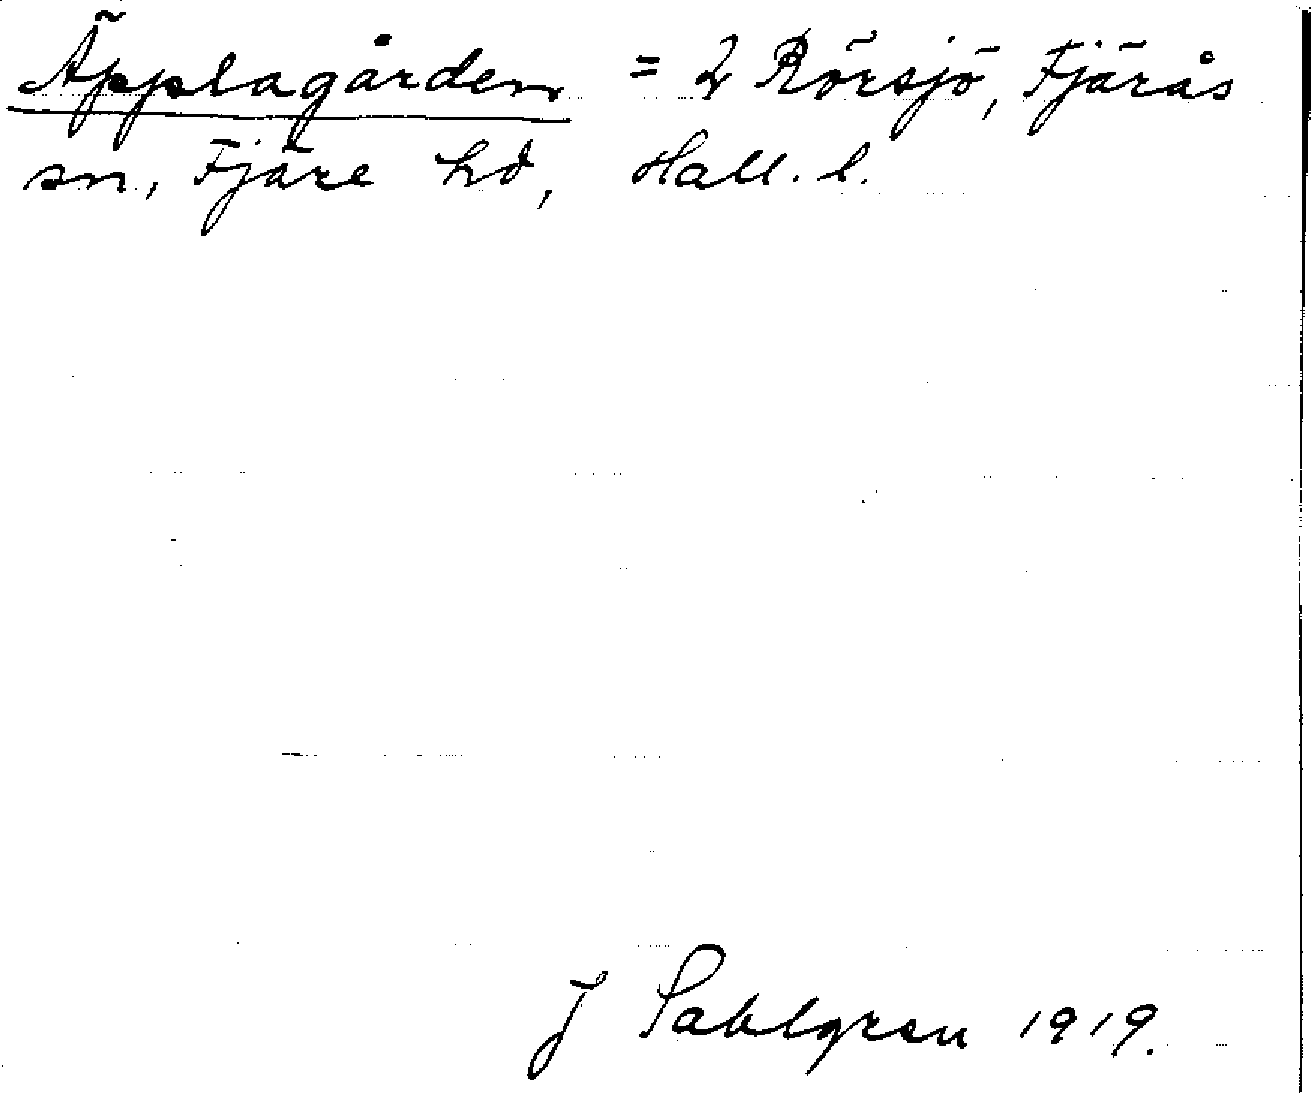 Äpplagården = 2 Rörsjö, Fjärås
sn., Fjäre hd, Hall. l.
J Sahlgren 1919.